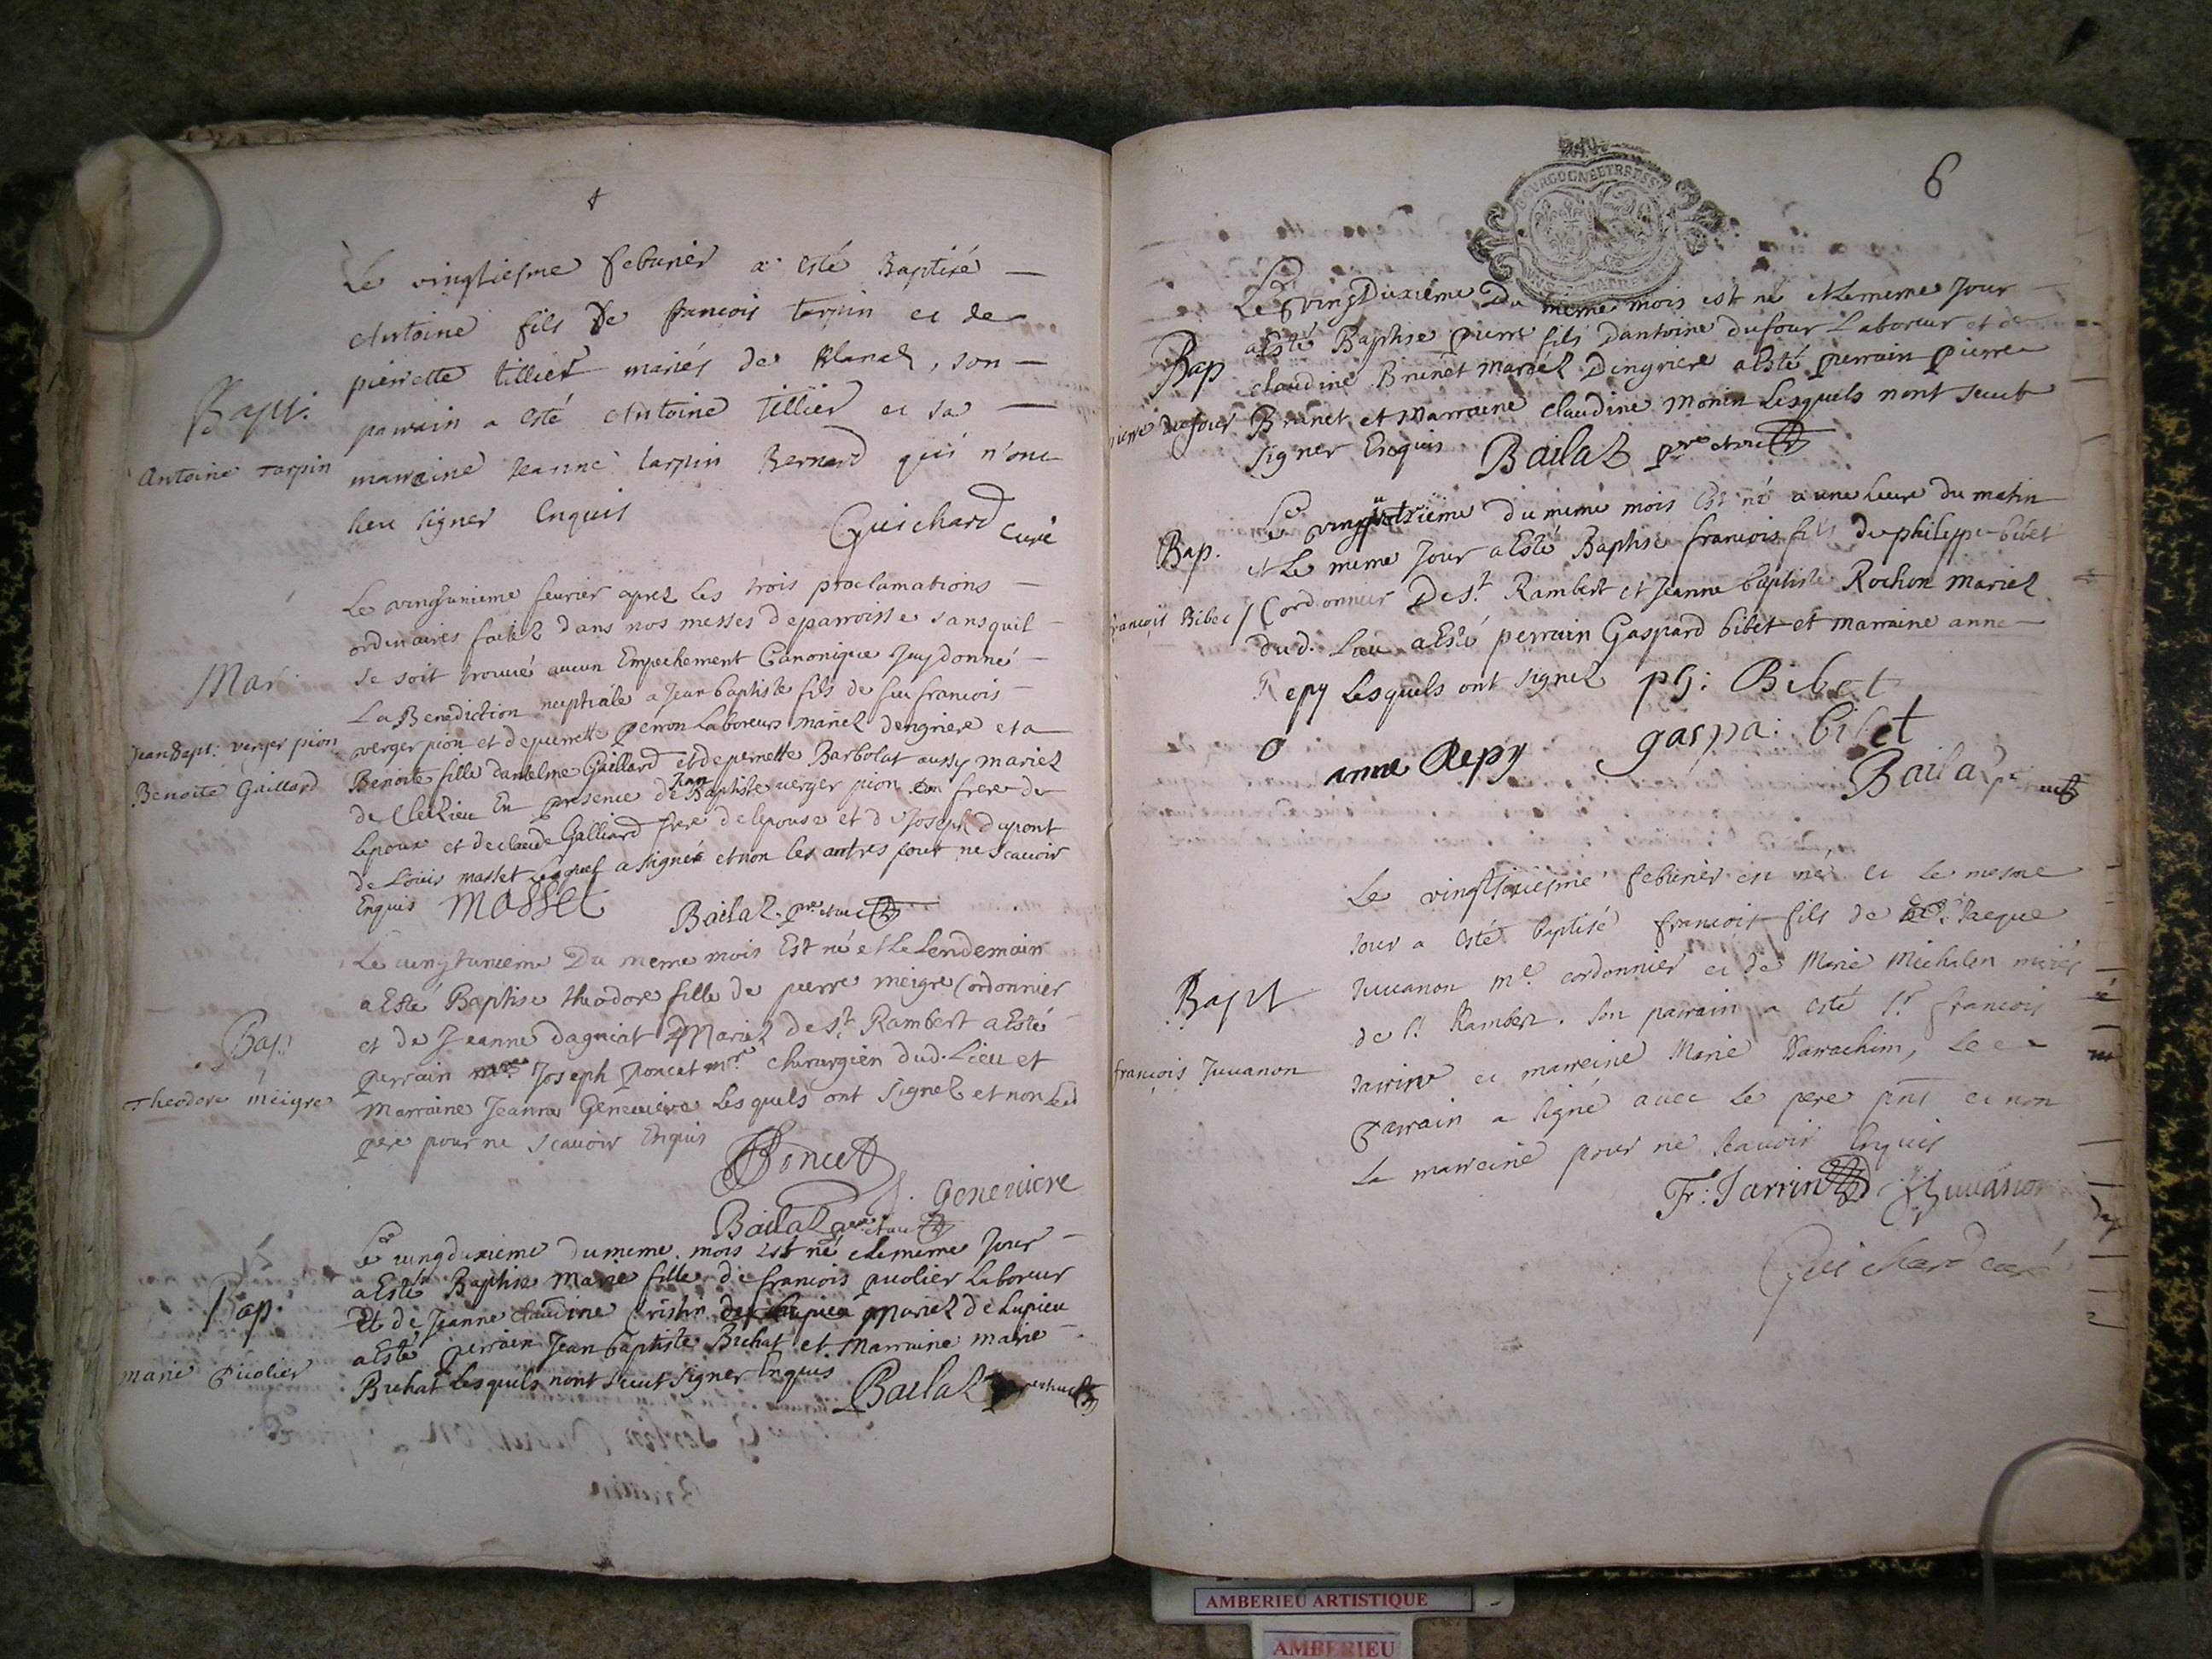 Le vingtiesme febvrier a esté Baptisé
Antoine fils De françois tarpin et de
pierrette tillier mariés de blanaz, son
Bapt.
parrain a esté Antoine Tillier et sa
Antoine Tarpin
marraine Jeanne tarpin Bernard qui n'ont
sceu signer Enquis
Guichard curé
Le vingtunieme feurier aprez les trois proclamations
ordinaires faitez dans nos messes de parroisse sans quil
Mar.
se soit trouué aucun Empechement Canonique Jay donné
La Benediction nuptiale a Jean baptiste fils de feu francois
Jean Bapt: verger pion
verger pion et de pierrette perron Laboreurs mariez dengriere et a
Benoite Gaillard
Benoite fille dantelme Gaillard et de pernette Barbolat aussy mariez
de Cleizieu En presence de Jean Baptiste verger pion frere de
Lepoux et de claude Galliard frere de lepouse et de Joseph dupont
de Louis masset Lequel a signé et non les autres pour ne scavoir
Enquis Masset
Bailaz pre et vic
Le vingtunieme Du meme mois Est né et le Lendemain
a Esté Baptise theodore fille de pierre meigre Cordonnier
et de Jeanne dagniat Mariez de St. Rambert a Esté
Bap.
perrain Joseph poncet mre chirurgien dud. Lieu et
Theodore meigre
Marraine Jeanne Geneuiere Lesquels ont signez et non Led
pere pour ne scavoir Enquis
Poncet
J. Geneuiere
Bailaz pre et vic
Le vingduxieme du meme mois est né et le meme Jour
a Esté Baptise Marie fille de francois picolier Laboreur
Bap.
Et de Jeanne Claudine Cristin Mariez de Lupieu
a Esté perrain Jean baptiste Buhat et Marraine marie
marie Picolier
Buhat Lesquels nont sceut signer Enquis
Bailaz
6
BOURGOGNE ET BRESSE
Le vingDuxieme Du meme mois est né et le meme Jour
a Esté Baptise pierre fils Dantoine dufour Laboreur et de
Bap
claudine Brunet Mariez Dingriere a Esté perrain pierre
pierre dufour
Brunet et Marraine claudine Monin Lesquels nont sceut
signer Enquis Bailaz pre et vic
Le vingquatrieme du meme mois Est né a une heure du matin
Bap.
et Le meme Jour a Esté Baptise francois fils de philippe bibet
françois Bibet
Cordonnier De St. Rambert et Jeanne baptiste Rochon Mariez
dud. Lieu a Esté perrain Gaspard bibet et marraine anne
Repy Lesquels ont signez ph: Bibet
anne Repy gaspa: bibet
Bailaz
Le vingtsixiesme febvrier est né et le mesme
Jour a esté baptisé francois fils de Jacque
Juuanon me. cordonnier et de Marie Michalon mariés
Bapt
de St Rambert. Son parrain a esté Sr. françois
françois Juuanon
Jarrin et marreine Marie Darrachin, Le
parrain a signé avec le pere pnt et non
La marreine pour ne scavoir Enquis
Fr: Jarrin Juuanon
Guichard curé
AMBERIEU ARTISTIQUE
AMBERIEU